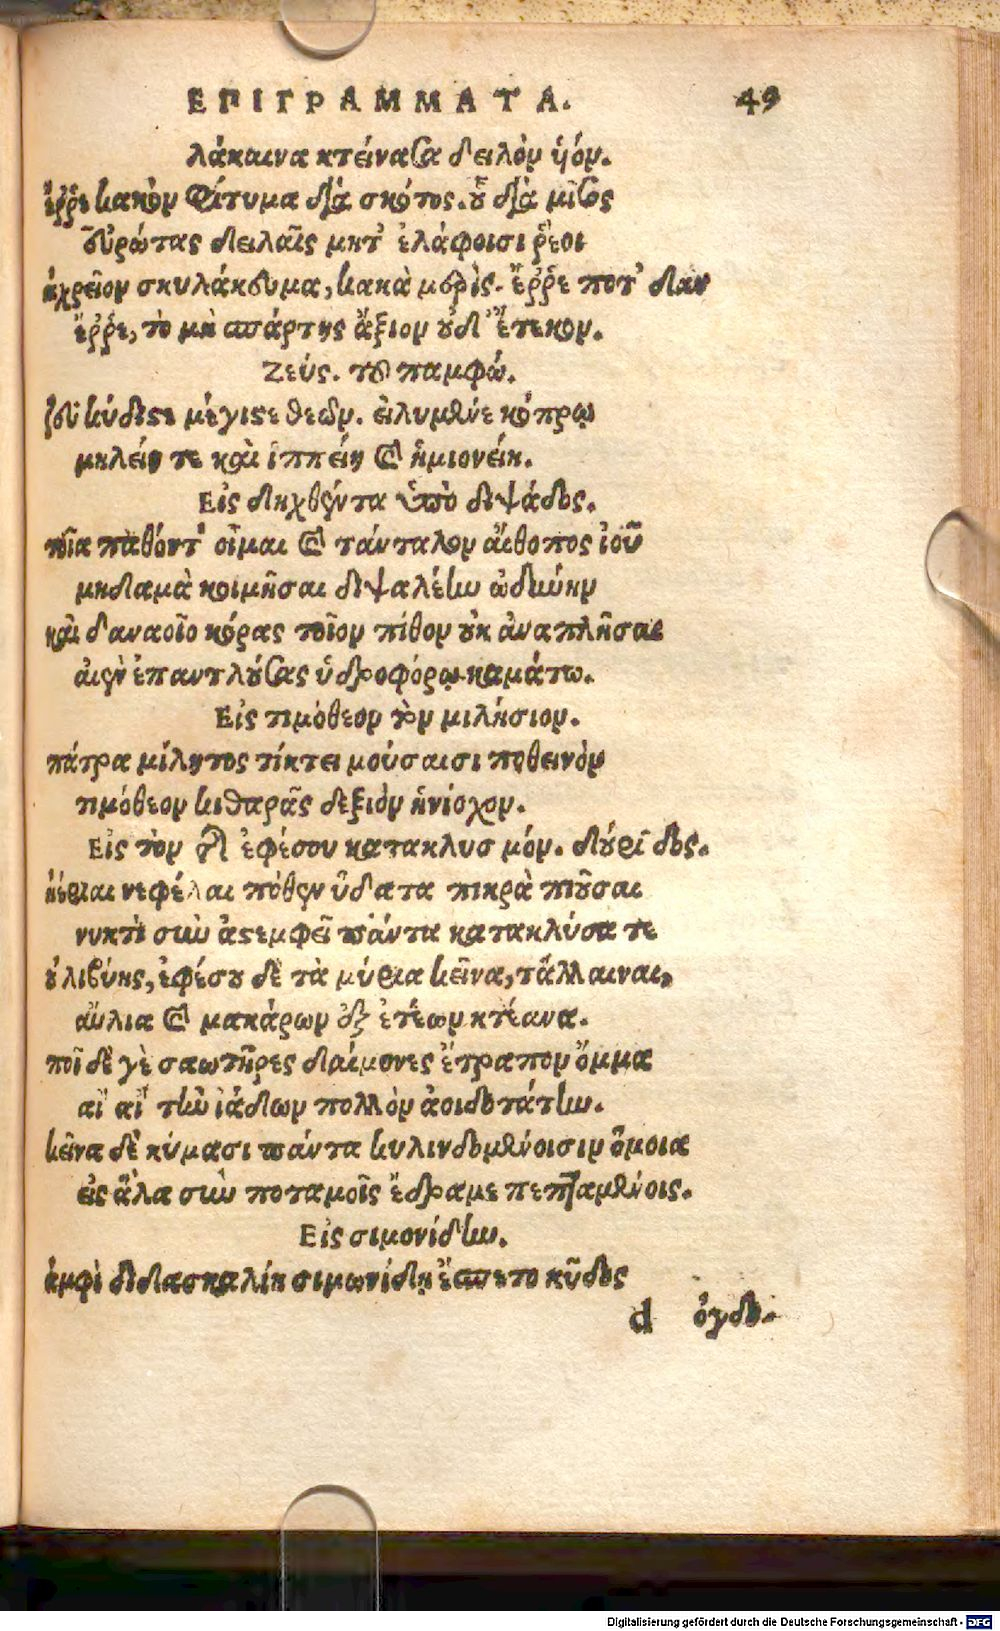 ΕΠΙΓΡΑΜΜΑΤΑ. 49
λάκαινα κτείνασα δειλὸν ὑόν.
ἔῤῥε κακὸν φίτυμα διὰ σκότος. οὗ διὰ μῖσος
εὐρώτας δειλαῖς μητ' ἐλάφοισι ῥέοι
ἀχρεῖον σκυλάκευμα, κακὰ μερὶς. ἔῤῥε ποτ' ᾅδαν
ἔῤῥε, τὸ μὴ σπάρτης ἄξιον οὐδ' ἔτεκον.
Ζεύς. τοῦ παμφώ.
ζεῦ κύδιστε μέγιστε θεῶν. εἰλυμένε κόπρῳ
μηλείῃ τε καὶ ἱππείῃ καὶ ἡμιονείῃ.
Εἰς δηχθέντα ὑπὸ διψάδος.
τοῖα παθόντ' οἶμαι καὶ τάνταλον αἴθοπος ἰοῦ
μηδαμὰ κοιμῆσαι διψαλέην ὠδύνην
καὶ δαναοῖο κόρας τοῖον πίθον οὐκ ἀναπλῆσαι
αἰὲν ἐπαντλούσας ὑδροφόρῳ καμάτω.
Εἰς τιμόθεον τὸν μιλήσιον.
πάτρα μίλητος τίκτει μούσαισι ποθεινὸν
τιμόθεον κιθαρᾶς δεξιὸν ἡνίοχον.
Εἰς τὸν τῆς ἐφέσου κατακλυσμόν. δούριδος.
ἠέριαι νεφέλαι πόθεν ὕδατα πικρὰ πιοῦσαι
νυκτὶ σὺν ἀστεμφεῖ πάντα κατακλύσατε
οὐ λιβύης, ἐφέσου δὲ τὰ μύρια κεῖνα, τἄλλαιναι,
αὔλια καὶ μακάρων ἐξ ἐτέων κτέανα.
ποῖ δὲ γὲ σαωτῆρες δαίμονες ἔτραπον ὄμμα
αἲ αἲ τὴν ἰάδων πολλὸν ἀοιδοτάτην.
κεῖνα δὲ κύμασι πάντα κυλινδομένοισιν ὅμοια
εἰς ἅλα σὺν ποταμοῖς ἔδραμε πεπταμένοις.
Εἰς σιμονίδην.
ἀμφὶ διδασκαλίῃ σιμωνίδῃ ἕσπετο κῦδος
d ὀγδω.
Digitalisierung gefördert durch die Deutsche Forschungsgemeinschaft - DFG